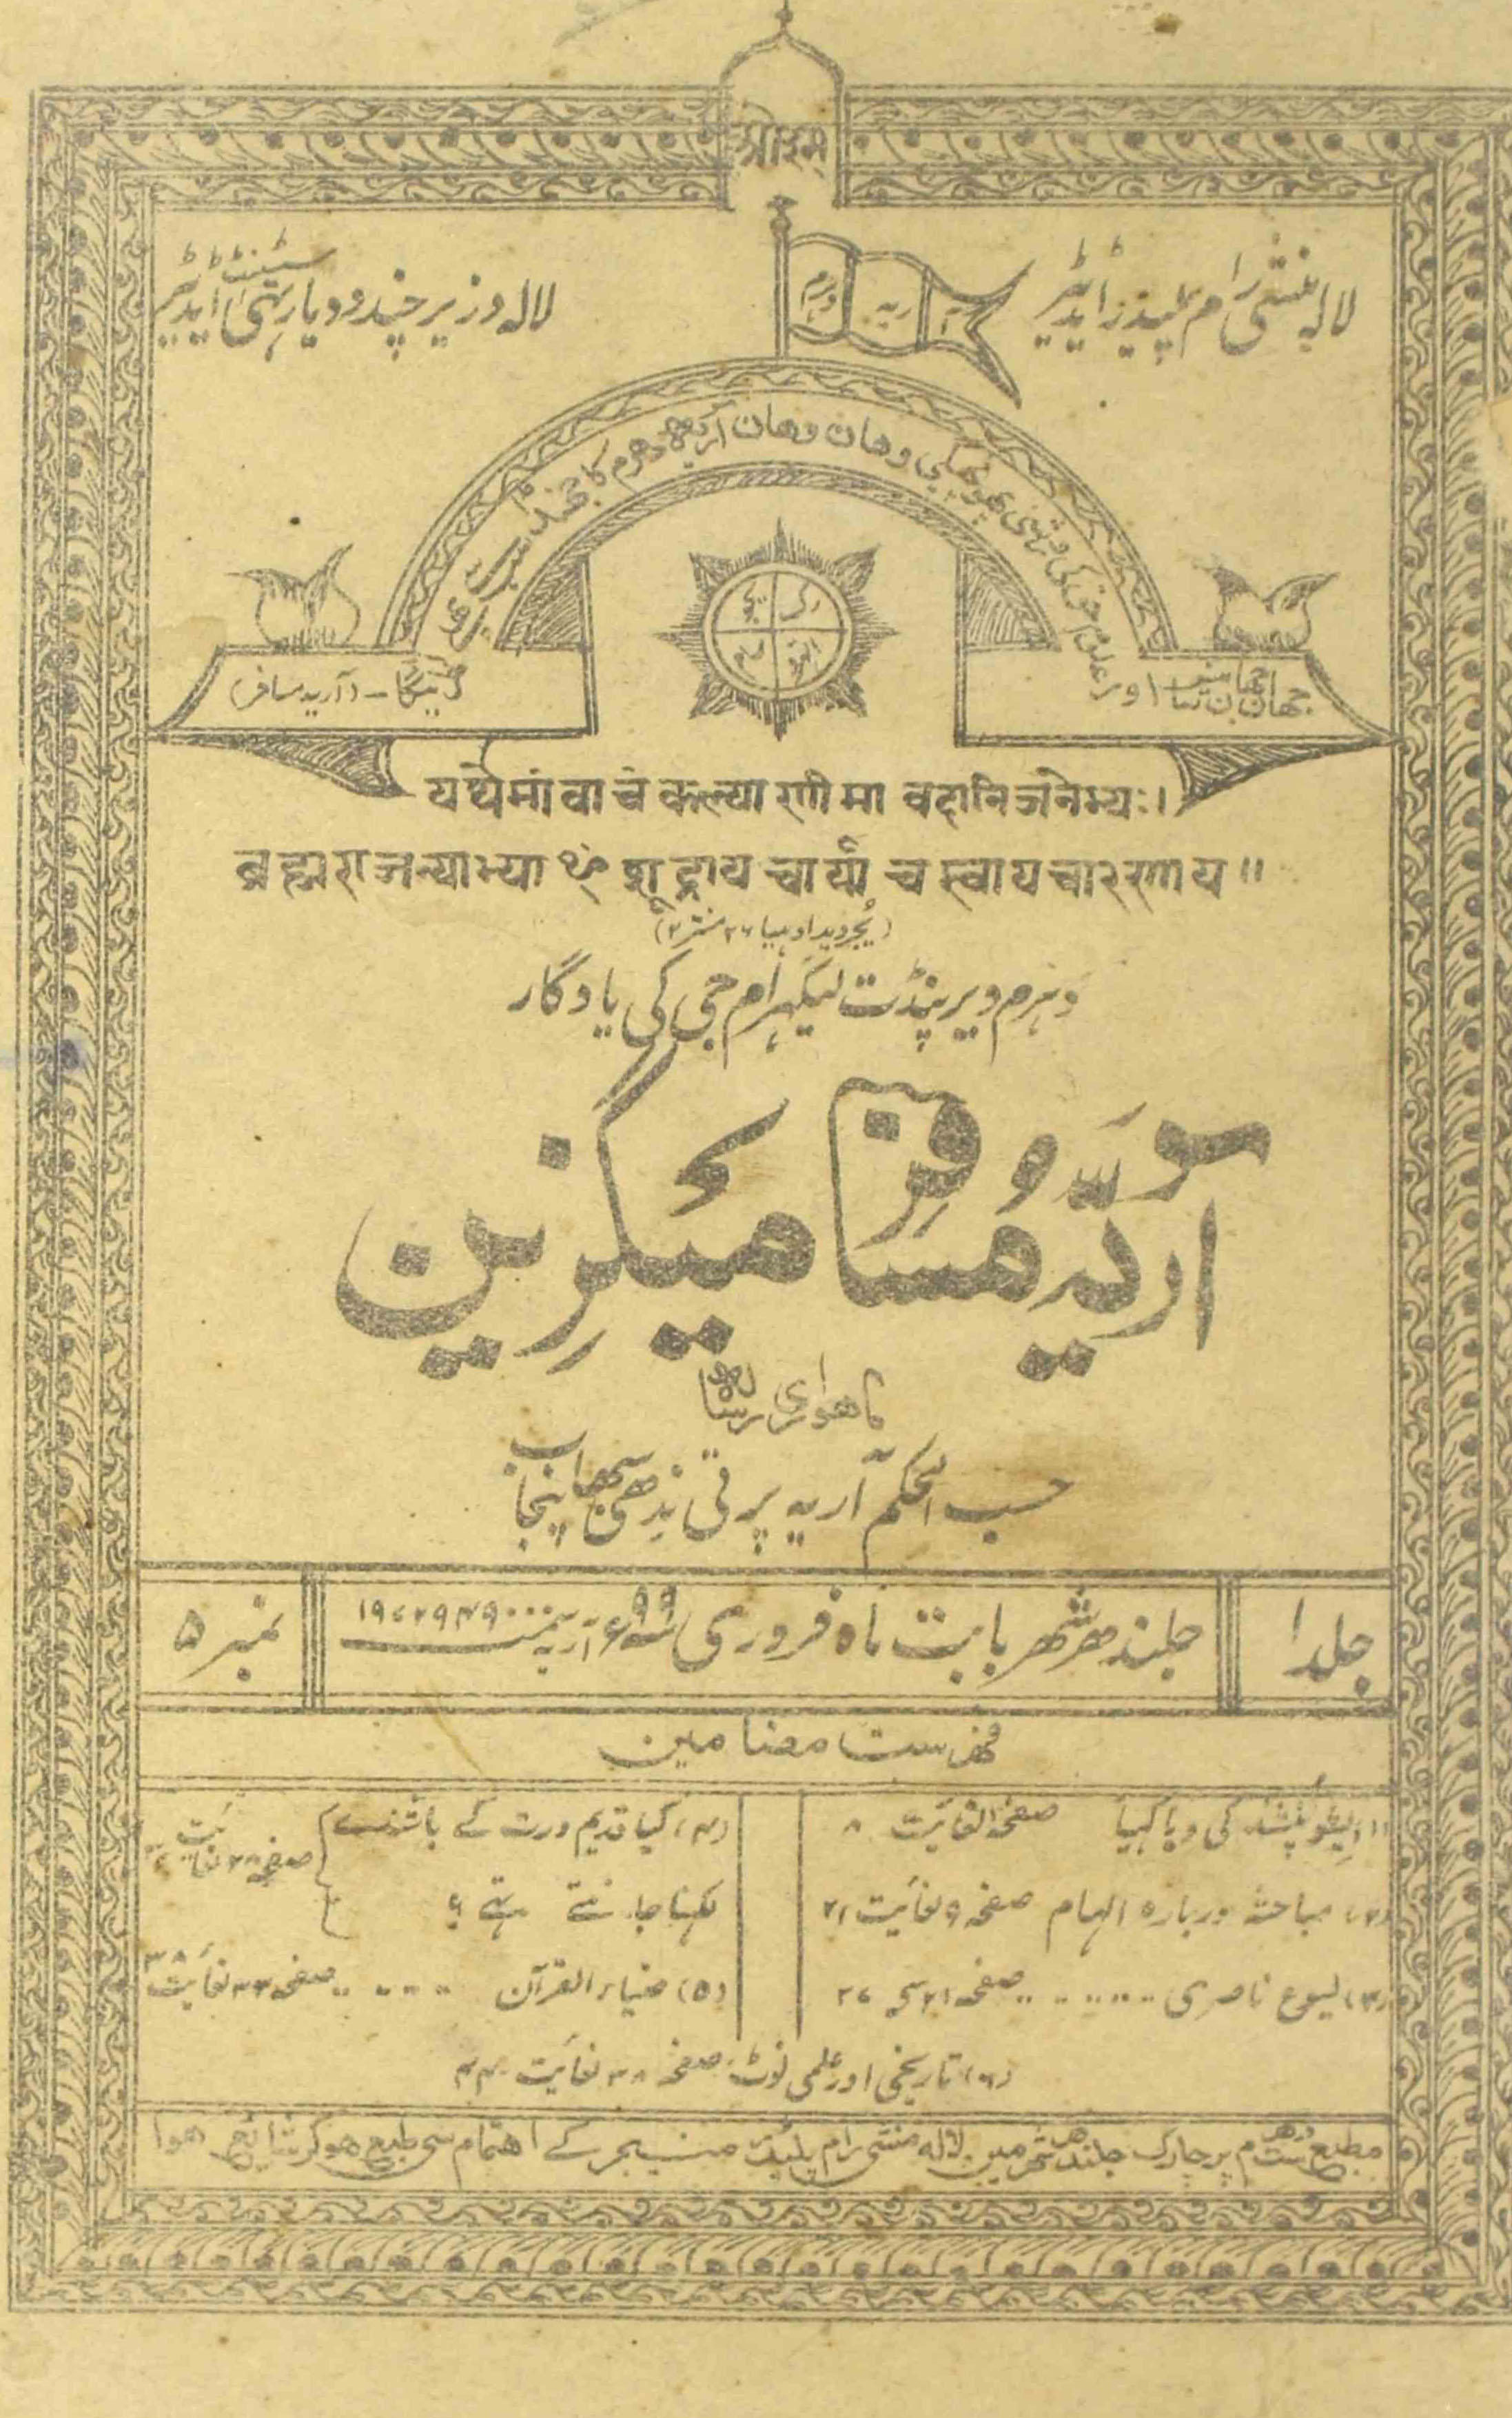 ओ३म्
لالہ منشی رام پلیڈر ایڈیٹر
لالہ وزیر چند ودیارتھی اسسٹنٹ ایڈیٹر
آریہ دھرم
جہان جہان سائینس اور علوم حقہ کی روشنی پھونچیگی وھان وھان آریہ دھرم کا جھنڈا سب سے اونچا
(آریہ مسافر)
رگ
یجر
سام
اتھرو
यथेमां वाचं कल्याणीमा वदानि जनेभ्यः।
ब्रह्मराजन्याभ्या ꣳ शूद्राय चार्याय च स्वाय चारणाय॥
(یجروید ادہیا ۲۶ منتر ۲)
دہرم ویر پنڈت لیکہرام جی کی یادگار
آریہ مسافر میگزین
ماھواری رسالہ
حسب الحکم آریہ پرتی ندھی سبھا پنجاب
جلد ۱
جلندھر شھر بابت ماہ فروری ۱۸۹۹ء آریہ سمت ۱۹۷۲۹۴۹۰۰۰
نمبر ۵
فہرست مضامین
(۱) ایشواپنشد کی ویاکہیا صفحہ ۱ لغایت ۸
(۲) مباحثہ دربارہ الہام صفحہ ۹ لغایت ۲۱
(۳) یسوع ناصری ........ صفحہ ۲۱ سے ۲۷
(۴) کیا قدیم ورت کے باشندے لکہنا جانتے تہے ؟ صفحہ ۲۸ لغایت
(۵) ضیاء القرآن ..... صفحہ ۳۳ لغایت ۳۸
(۶) تاریخی اور علمی نوٹ صفحہ ۳۸ لغایت ۴۴
مطبع ست دھرم پرچارک جلندھر شھر مین لالہ منشی رام پلیڈر منیجر کے اھتمام سے طبع ھوکر شائع ھوا